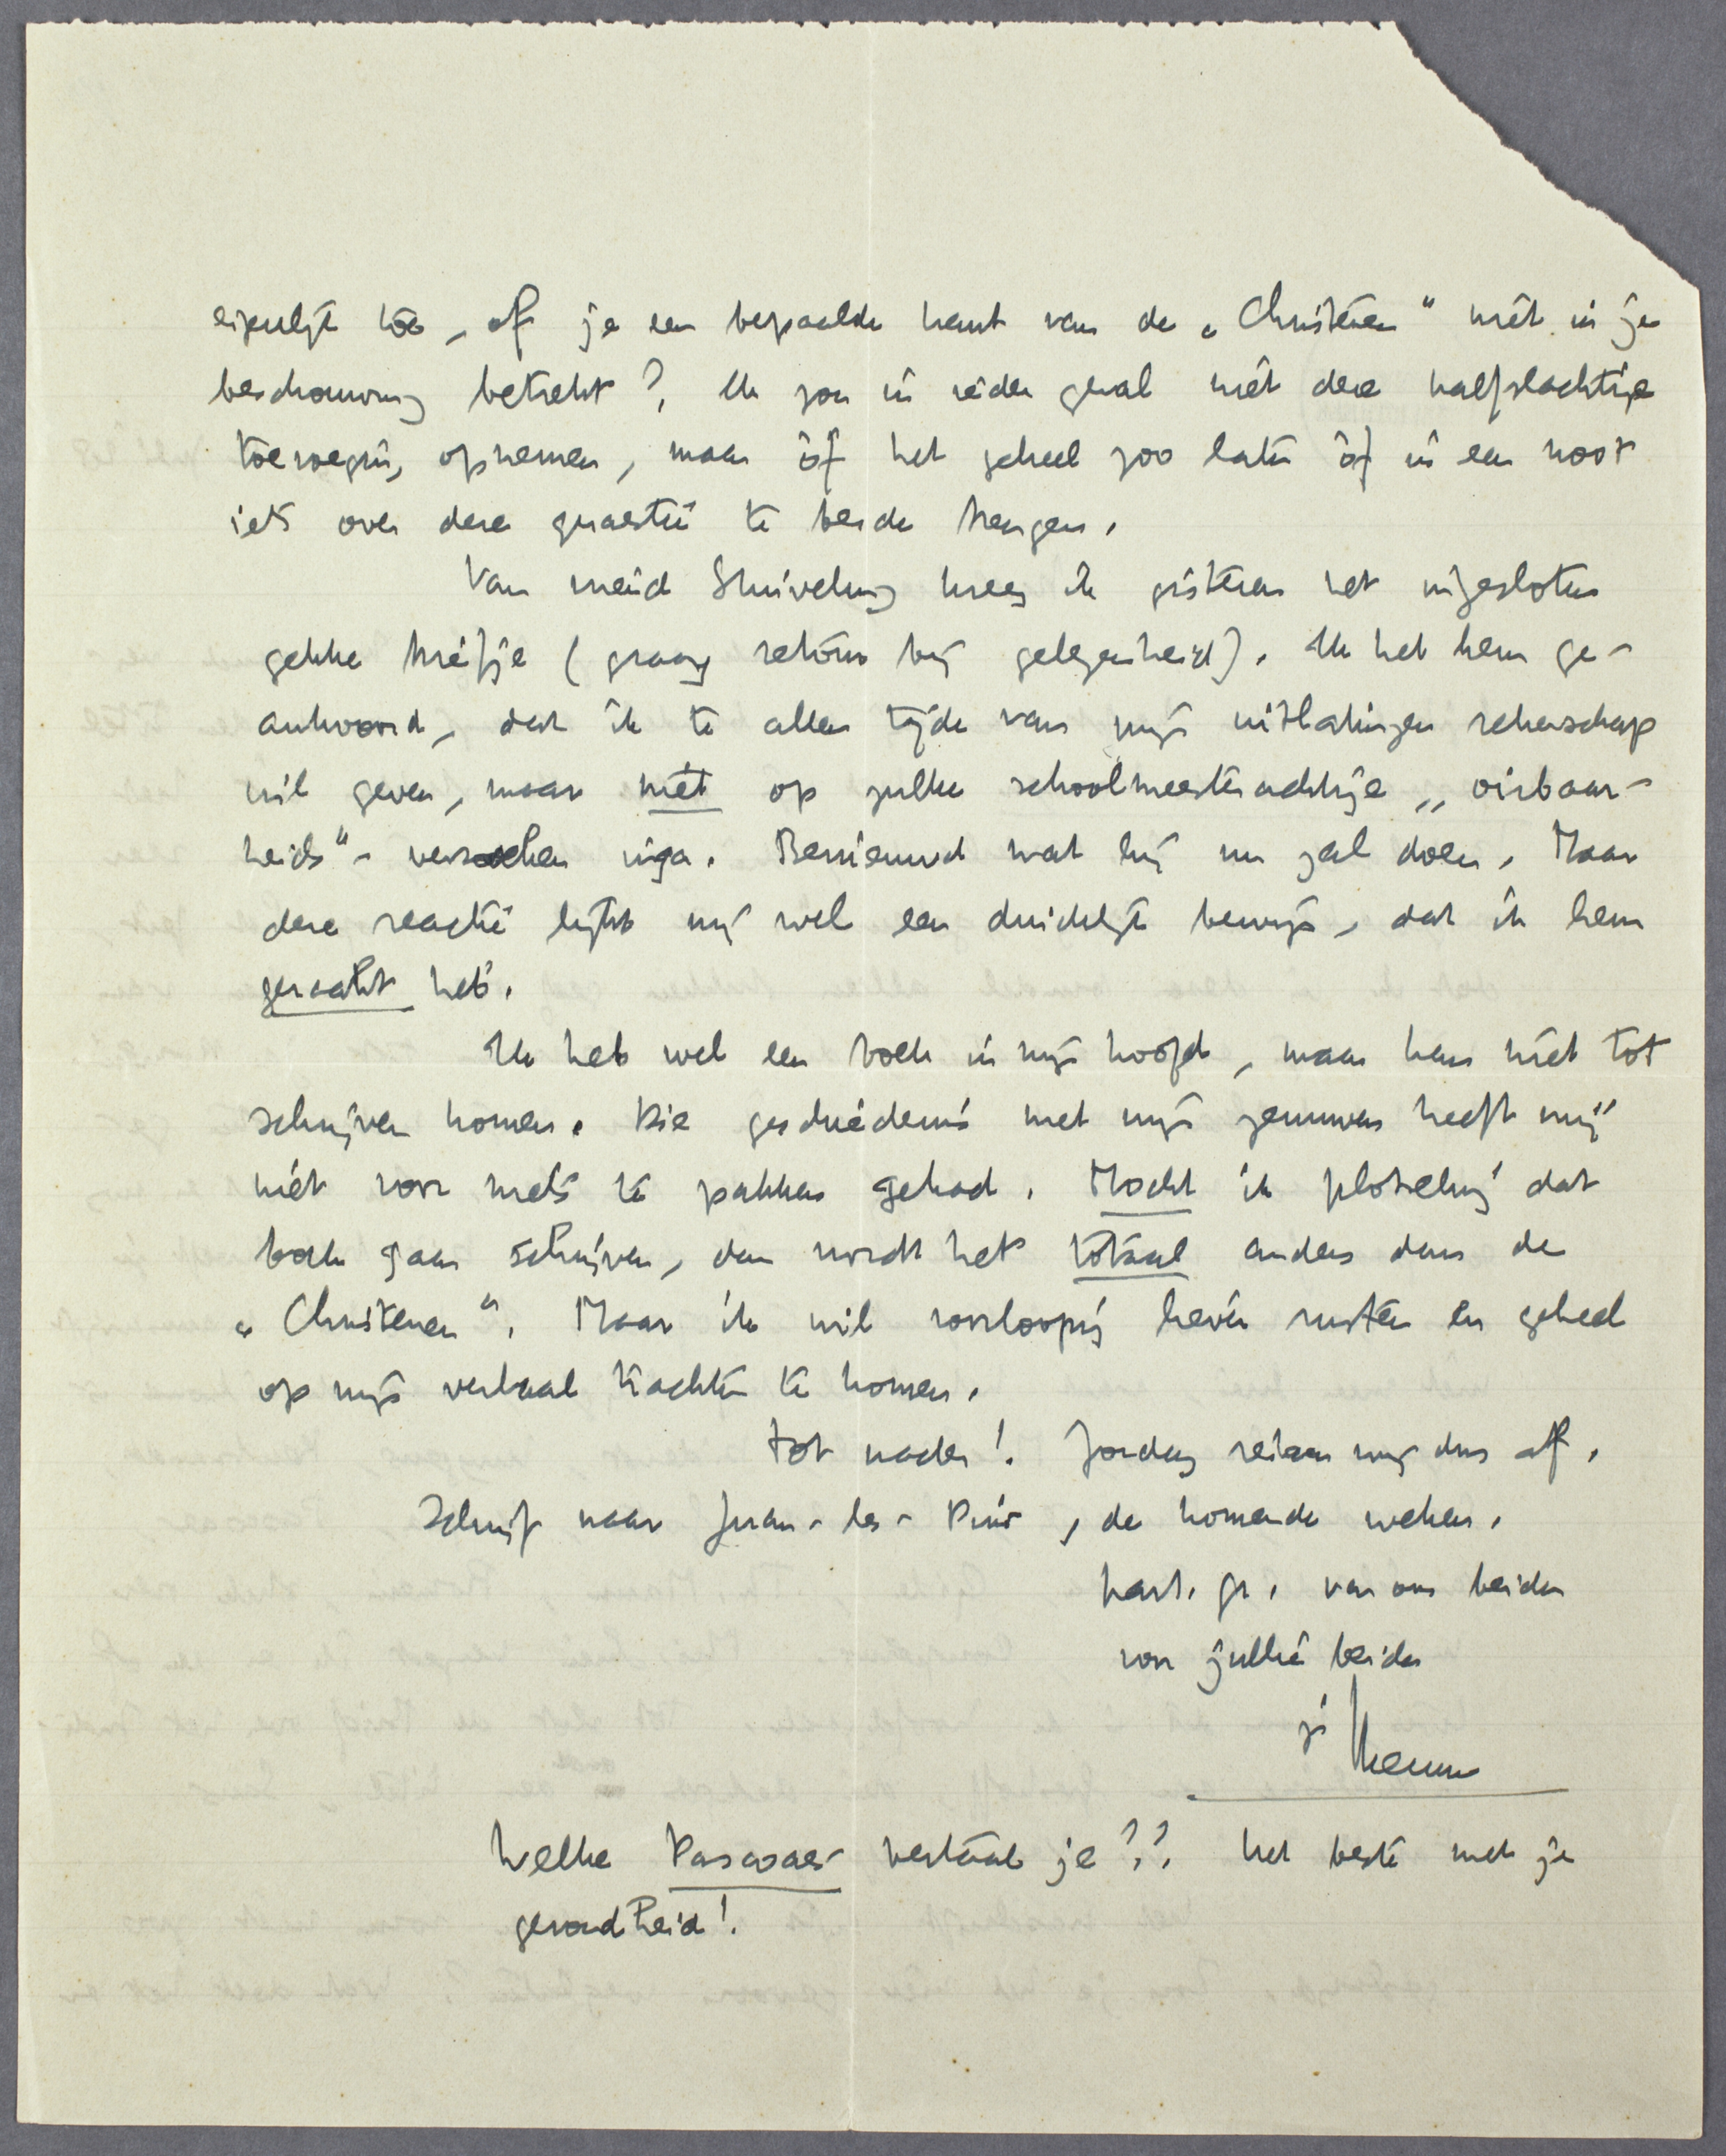 eigenlijk toe, of je een bepaalde kant van de „Christenen" niet in je
beschouwing betrekt? Ik zou in ieder geval niet deze halfslachtige
toevoeging opnemen, maar òf het geheel zoo laten òf in een noot
iets over deze quaestie te berde brengen.
Van vriend Stuiveling kreeg ik gisteren het ingesloten
gekke briefje (graag retour bij gelegenheid). Ik heb hem ge-
antwoord, dat ik te allen tijde van mijn uitlatingen rekenschap
wil geven, maar niet op zulke schoolmeesterachtige „oirbaar-
heids"-verzoeken inga. Benieuwd wat hij nu zal doen. Maar
deze reactie lijkt mij wel een duidelijk bewijs, dat ik hem
geraakt heb.
Ik heb wel een boek in mijn hoofd, maar kan niet tot
schrijven komen. Die geschiedenis met mijn zenuwen heeft mij
niet voor niets te pakken gehad. Mocht ik plotseling dat
boek gaan schrijven, dan wordt het totaal anders dan de
„Christenen". Maar ik wil voorloopig liever rusten en geheel
op mijn verhaal trachten te komen.
Tot nader! Zondag reizen wij dus af.
Schrijf naar Juan-les-Pins, de komende weken.
hart. gr. van ons beiden
voor jullie beiden
je Menno
Welke Pascoaes vertaal je?? Het beste met je
gezondheid!